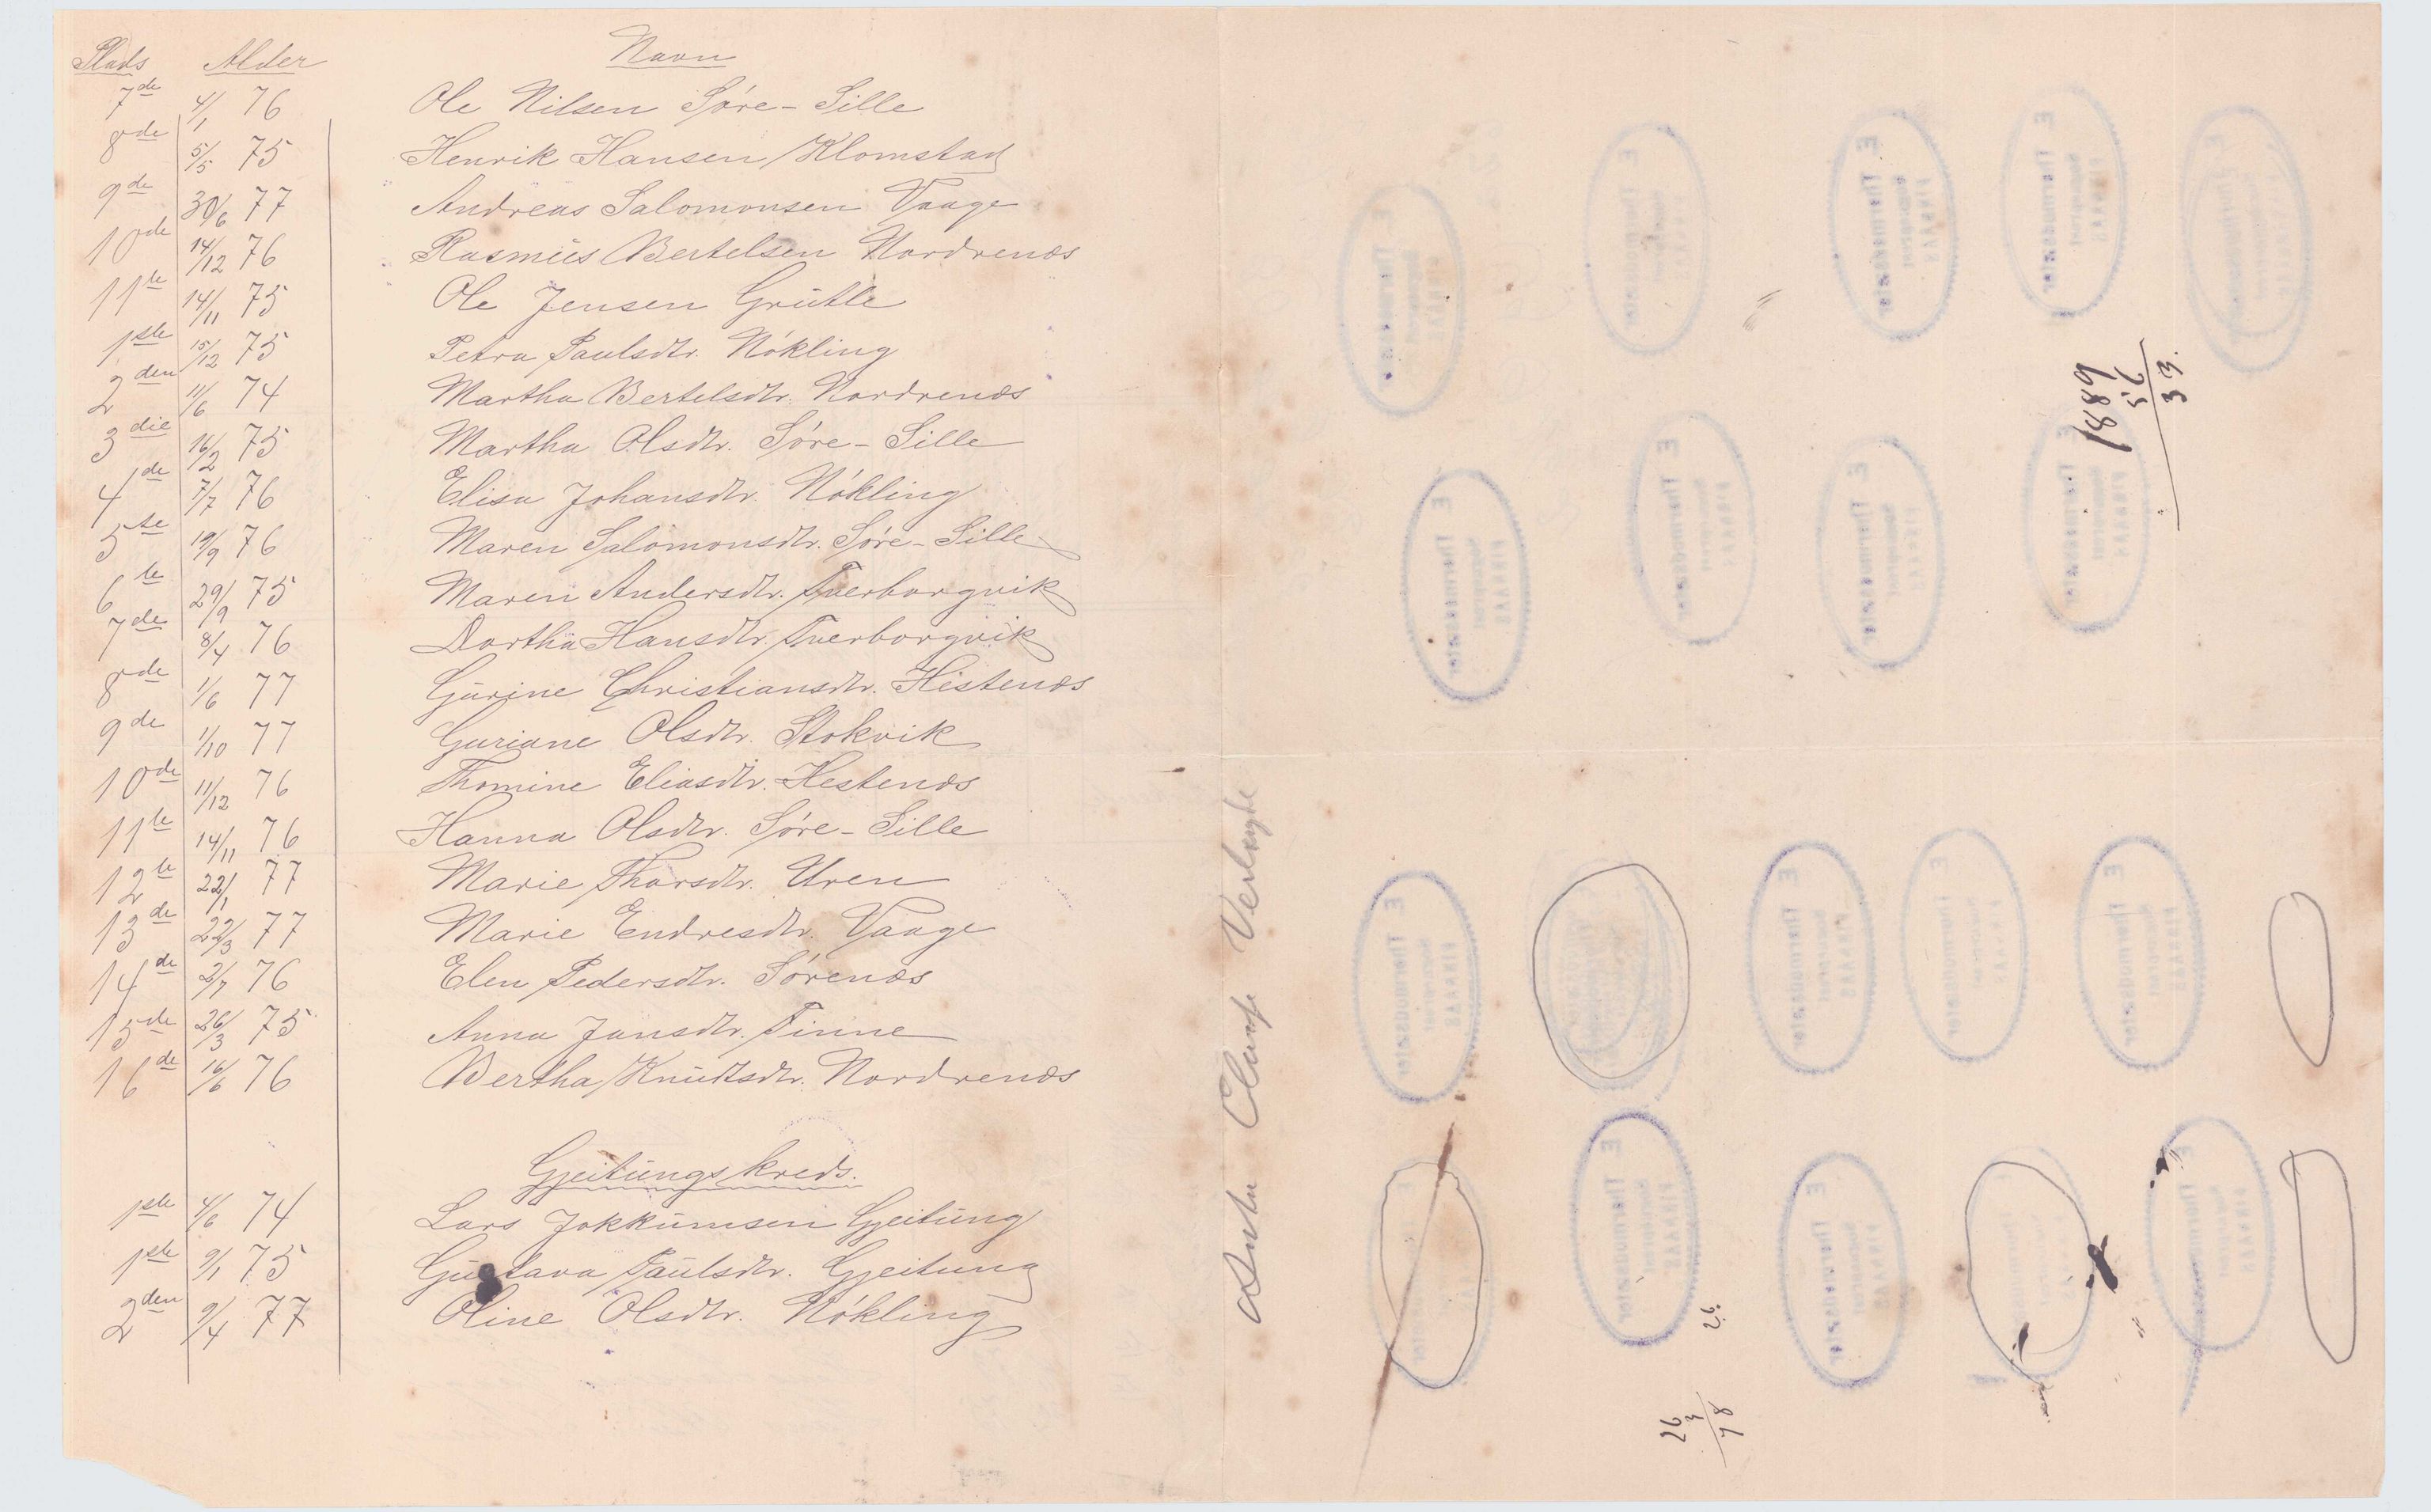 Plads Alder Navn
7de 4/1 76 Ole Nilsen Søre-Sille
8de 5/5 75 Henrik Hansen Klomstad
9de 30/6 77 Andreas Salomonsen Vaage
10de 14/12 76 Rasmus Bertelsen Nordrenæs
11te 14/11 75 Ole Jensen Grutle
1ste 15/12 75 Petra Paulsdtr. Nökling
2den 11/6 74 Martha Bertelsdtr. Nordrenæs
3die 16/2 75 Martha Olsdtr. Søre-Sille
4de 7/7 76 Elisa Johansdtr. Nökling
5te 19/9 76 Maren Salomonsdtr. Søre-Sille
6te 29/9 75 Maren Andersdtr. Tverborgvik
7de 8/4 76 Dortha Hansdtr. Tverborgvik
8de 1/6 77 Gurine Christiansdtr. Hestenæs
9de 1/10 77 Guriane Olsdtr. Stokvik
10de 11/12 76 Thomine Eliasdtr. Hestenæs
11te 14/11 76 Hanna Olsdtr. Søre-Sille
12te 22/1 77 Marie Thorsdtr. Uren
13de 22/3 77 Marie Endresdtr. Vaage
14de 2/7 76 Elen Pedersdtr. Sørenæs
15de 26/3 75 Anna Jansdtr. Finne
16de 16/6 76 Bertha Knudtsdtr. Nordrenæs
Gjeitungskreds.
1ste 4/6 74 Lars Jokkumsen Gjeitung
1ste 9/1 75 Gustava Paulsdtr. Gjeitung
2den 9/4 77 Oline Olsdtr. Nökling
1889
56
33.
26.
26
3
78